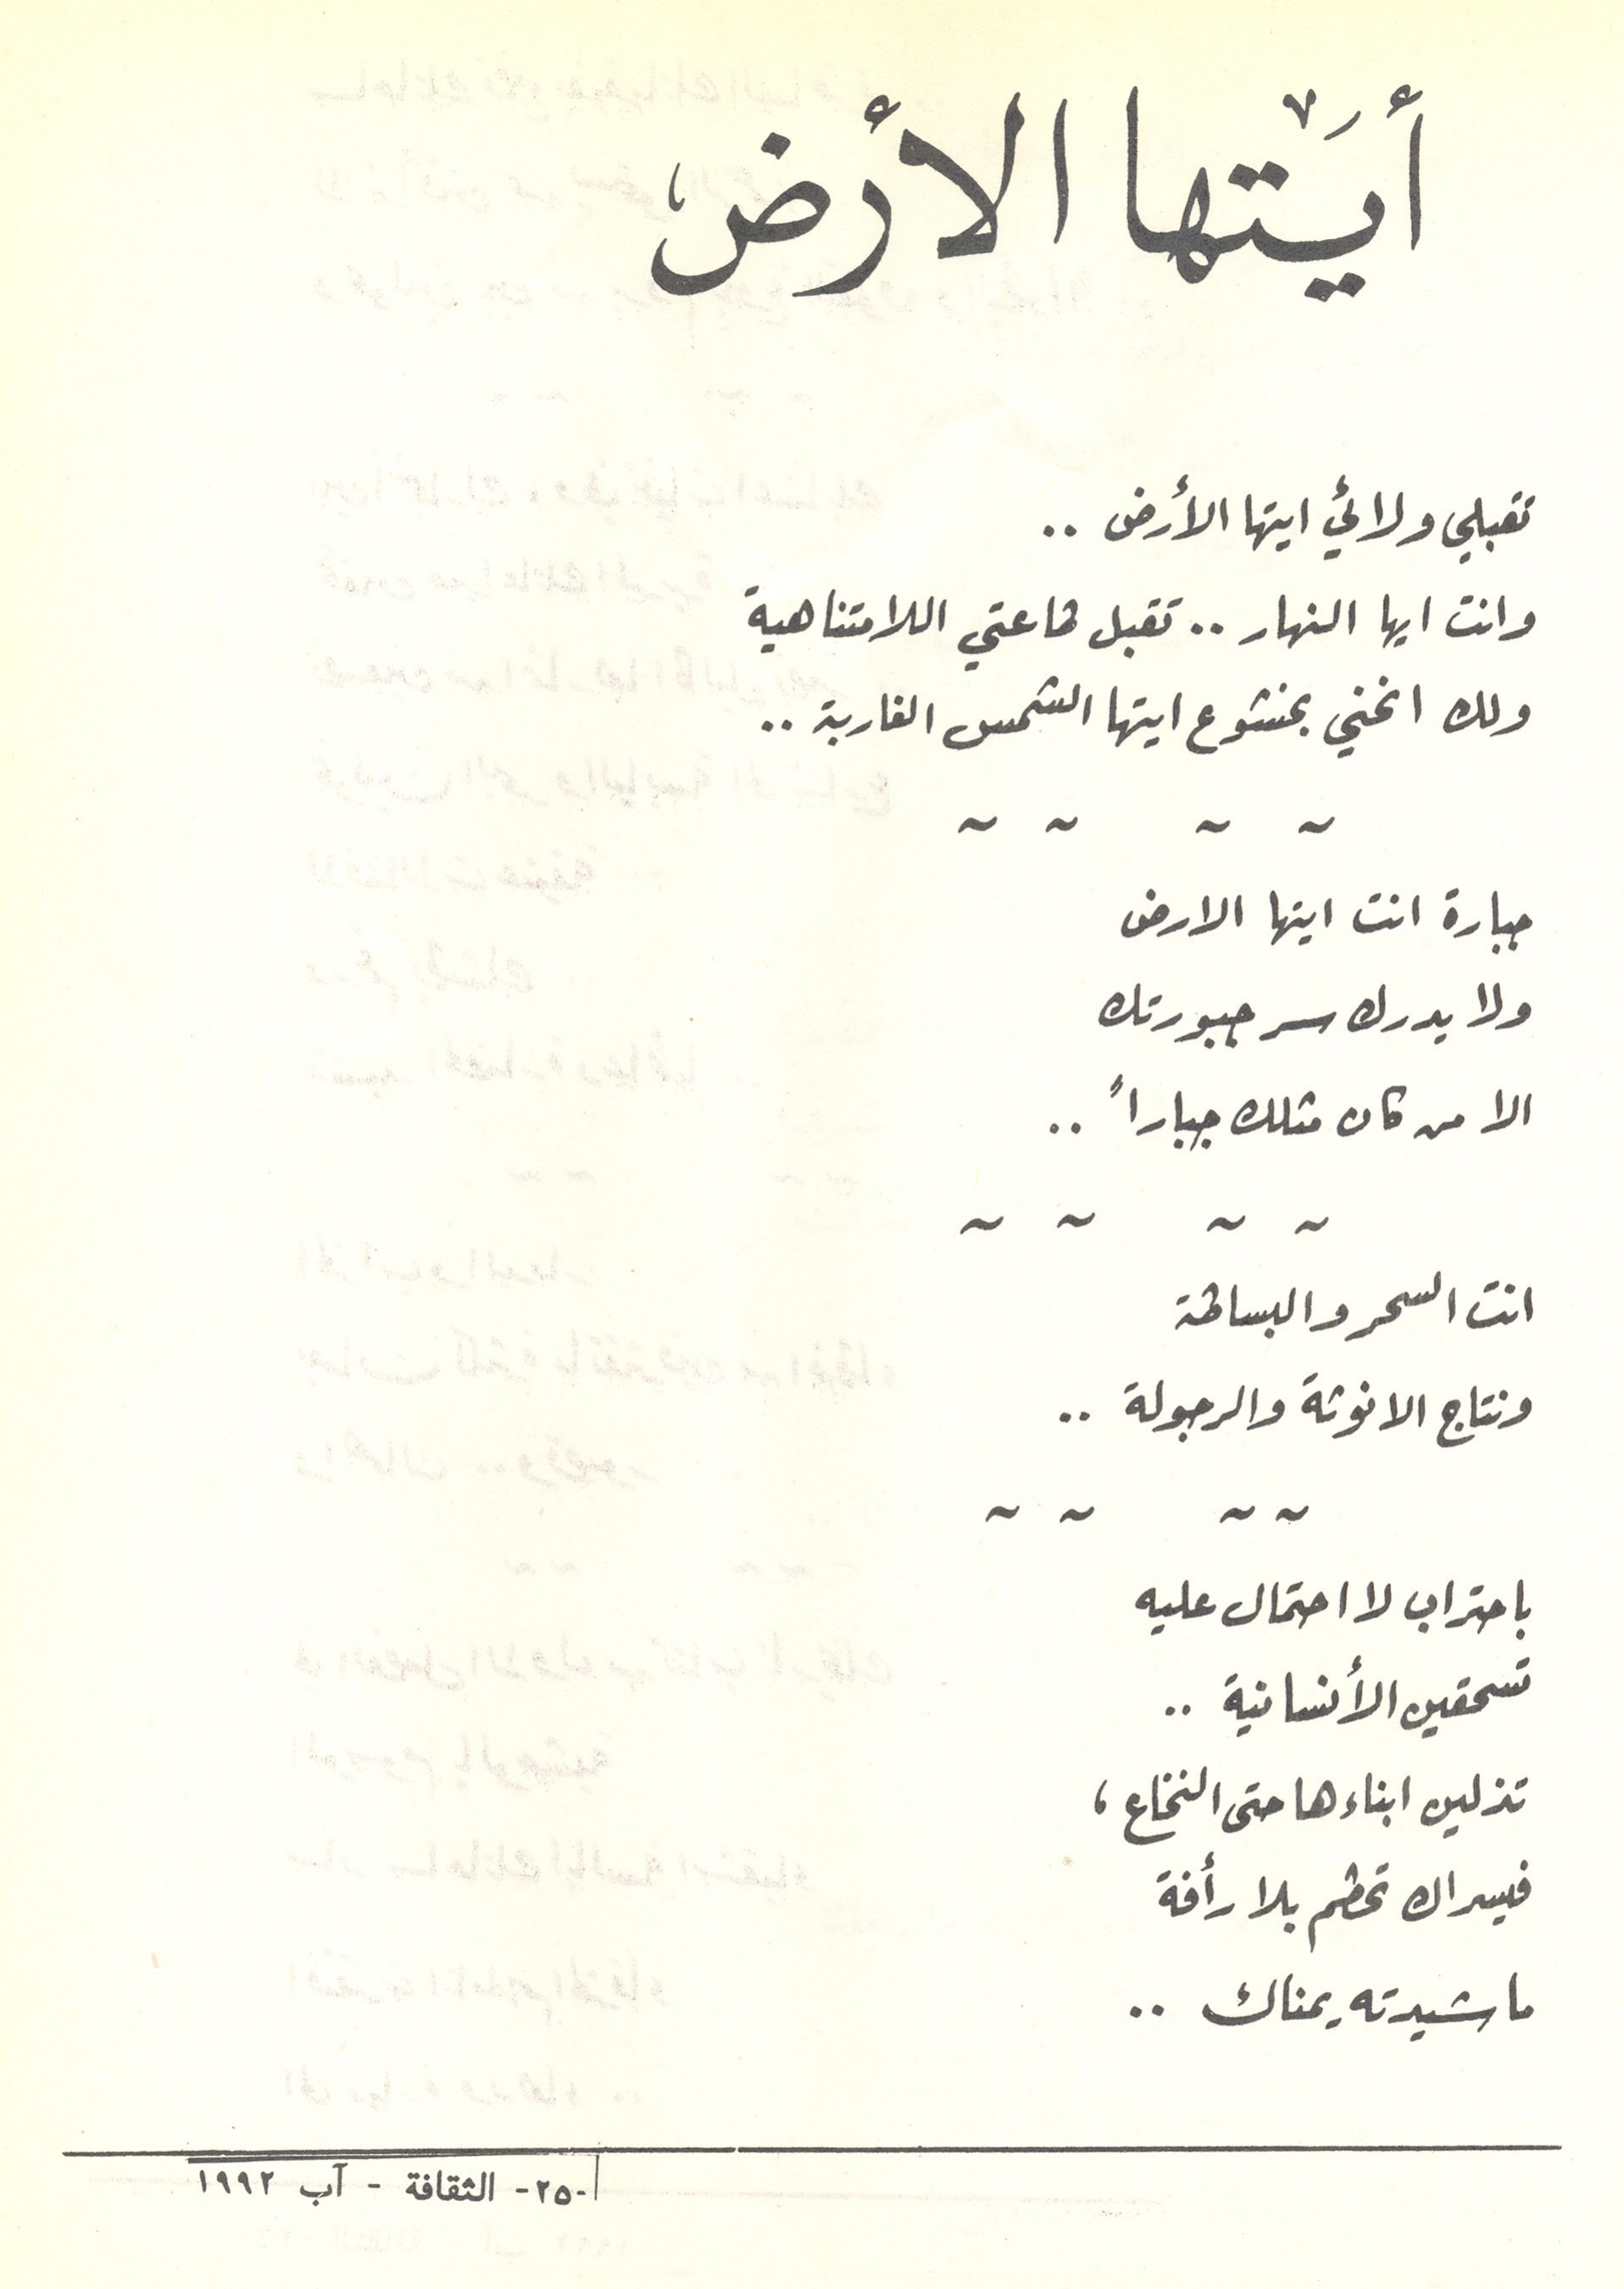 أيَتها الأرض،
تقبلي ولائي ايتها الأرض ..
وانت ايها النهار .. تقبل طاعتي اللامتناهية
ولك انحني بخشوع ايتها الشمس الغاربة ..
~ ~ ~ ~
جبارة انت ايتها الارض
ولا يدرك سر جبورتك
الا من كان مثلك جباراً ..
~ ~ ~ ~
انت السحر والبساطة
ونتاج الانوثة والرجولة ..
~ ~ ~ ~
باحتراب لا احتمال عليه
تسحقين الأنسانية ..
تذلين ابناءها حتى النخاع ،
فيسراك تحطم بلا رأفة
ما شيدته يمناك ..
-٢٥- الثقافة - آب ١٩٩٢